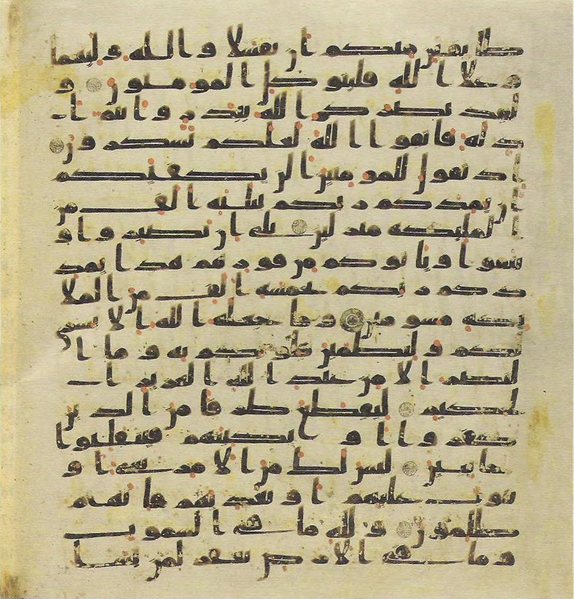 طائفتن منكم ان تفشلا والله وليهما
وعلا الله فليتوكل المومنون و
لقد نصركم الله ببدر وانتم ا
ذلة فاتقوا الله لعلكم تشكرون
اذ تقول للمومنين الن يكفيكم
ان يمدكم ربكم بثلثة الف من
الملئكة منزلين بلى ان تصبروا و
تتقوا وياتوكم من فورهم هذا يمد
دكم ربكم بخمسة الف من الملا
ئكة مسومين وما جعله الله الا بشر
ى لكم ولتطمئن قلوبكم به وما ا
لنصر الا من عند الله العزيز ا
لحكيم ليقطع طرفا من الذين
كفروا او يكبتهم فينقلبوا
خائبين ليس لك من الامر شيء او
يتوب عليهم او يعذبهم فانهم
ظلمون ولله ما في السموت
وما في الارض يغفر لمن يشا